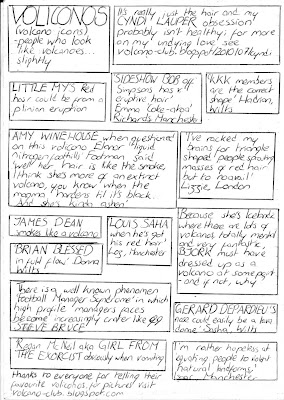 VOLICONOS
(volcano icons)
-people who look
like volcanoes...
slightly
It's really just the hair and my
CYNDI LAUPER obsession
probably isn't healthy; for more
on my undying love see
volcano-club.blogspot/2010/07/cyndi
LITTLE MY'S Red
hair could be from a
plinian eruption
SIDESHOW BOB off
Simpsons has
eruptive hair'
Emma (aka-aka)
Richards Manchester
'KKK members
are the correct
shape' Hadrian,
Wilts
AMY WINEHOUSE when questioned
on this volcano Elanor 'liquid
nitrogen footbills' Footman said
'well her hair is like the smoke,
I think she's more of an extinct
volcano, you know when the
magma hardens, til it's black.
And she's kinda rotten'
'I've rocked my
brains for triangle
shaped people sporting
masses of red hair
but to no avail'
Lizzie, London
JAMES DEAN
smokes like a volcano
LOUIS SAHA
when he's got
his red hair'
Leg, Manchester
Because she's Icelandic
where there are lots of
volcanoes, totally mental
and very fantastic,
BJORK must have
dressed up as a
volcano at some point
and if not, why?
BRIAN BLESSED
in full flow' Donna,
Wilts
'There is a well known phenomen
'Football Manager Syndrome' in which
high profile managers faces
become increasingly crater like eg
STEVE BRUCE'
GERARD DEPARDIEU'S
nose could easily be a lava
dome' Sasha, Wilts
'Regan McNeil aka GIRL FROM
THE EXORCIST obviously when vomiting
'I'm rather hopeless at
equating people to violent
natural landforms'
Manchester
Thanks to everyone for telling their
favourite volicanos, for pictures visit
volcano-club.blogspot.com